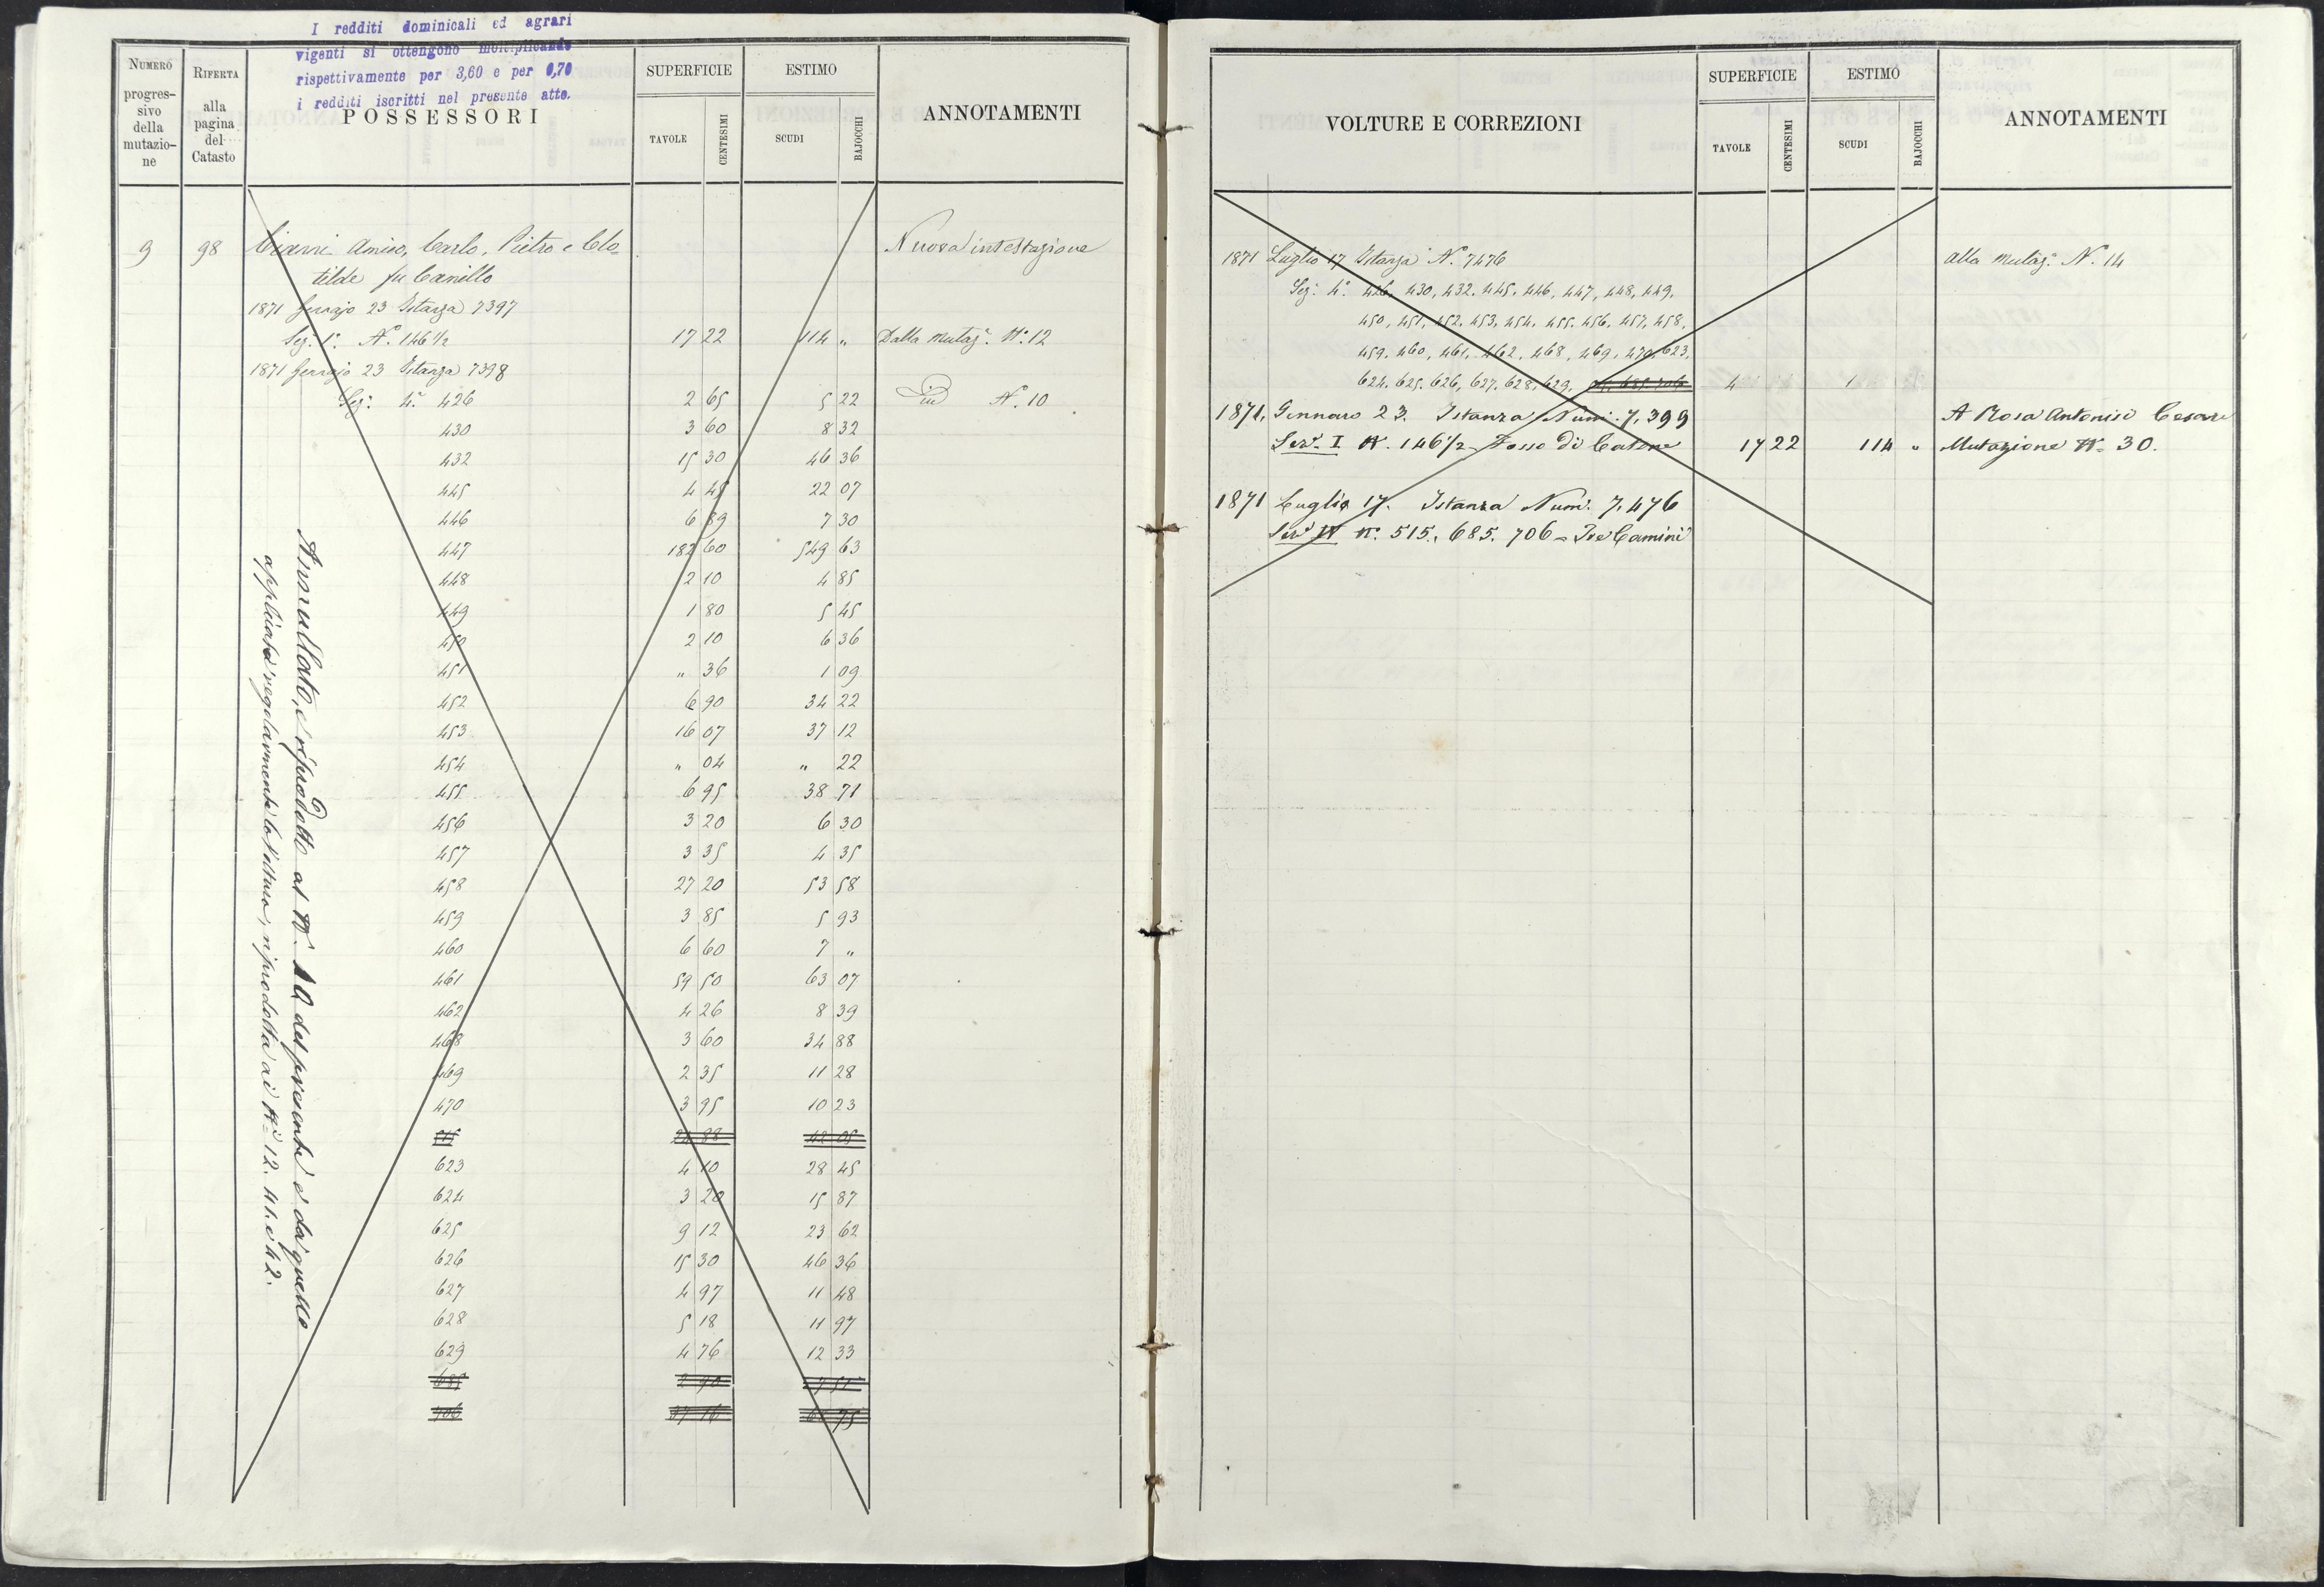 I redditi dominicali ed agrari
vigenti si ottengono moltiplicando
rispettivamente per 3,60 e per 0,70
i redditi iscritti nel presente atto.
NUMERO progressivo della mutazione
RIFERTA alla pagina del Catasto
POSSESSORI
SUPERFICIE
TAVOLE CENTESIMI
ESTIMO
SCUDI BAJOCCHI
ANNOTAMENTI
9 98 Cianni Amico, Carlo, Pietro e Clo= Nuova intestazione
tilde fu Camillo
1871 Gennajo 23 Istanza 7397
Sez. 1ª. N° 146 1/2 17 22 114 „ Dalla Mutaz. N: 12
1871 Gennajo 23 Istanza 7398
Sez. 4ª 426 2 65 5 22 N. 10
430 3 60 8 32
432 15 30 46 36
445 4 45 22 07
446 6 89 7 30
447 182 60 549 63
448 2 10 4 85
449 1 80 5 45
450 2 10 6 36
451 „ 36 1 09
452 6 90 34 22
453 16 07 37 12
454 „ 04 „ 22
455 6 95 38 71
456 3 20 6 30
457 3 35 4 35
458 27 20 53 58
459 3 85 5 93
460 6 60 7 „
461 59 50 63 07
462 4 26 8 39
468 3 60 34 88
469 2 35 11 28
470 3 95 10 23
515 88 42 05
623 4 10 28 45
624 3 20 15 87
625 9 12 23 62
626 15 30 46 36
627 4 97 11 48
628 5 18 11 97
629 4 76 12 33
685 2 90
706 37 16 75
Annullato, e riprodotto al N. 10 del presente e da quello
applicata regolarmente la voltura, riprodotta ai N: 12. 41. e 42.
VOLTURE E CORREZIONI
SUPERFICIE
TAVOLE CENTESIMI
ESTIMO
SCUDI BAJOCCHI
ANNOTAMENTI
1871 Luglio 17 Istanza N. 7476 alla Mutaz. N. 14
Sez. 4ª. 426, 430, 432. 445, 446, 447, 448, 449,
450, 451, 452, 453, 454, 455, 456, 457, 458,
459, 460, 461, 462, 468, 469, 470, 623,
624, 625, 626, 627, 628, 629, 685. 706
1871. Gennaro 23. Istanza Num. 7,399 A Rosa Antonisi Cesare
Sezª. I N. 146 1/2 Fosso di Catone 17 22 114 „ Mutazione N. 30.
1871 Luglio 17. Istanza Num. 7,476
Sezª IV N. 515. 685. 706 = Tre Camini